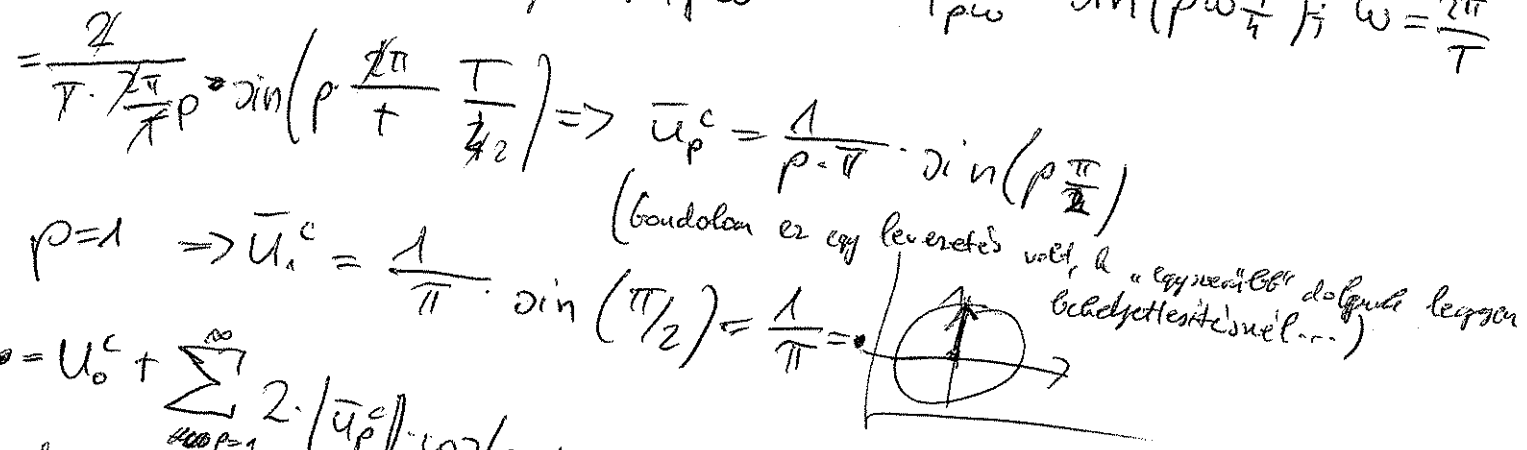 pω sin(pω T/4); ω = 2π/T
= 2/(T · 2π/T p) · sin(p · 2π/T · T/4 2) => ū_p^c = 1/(p·π) · sin(p π/2)
(Gondolom ez egy levezetés volt, h „egyszerűbb" dolgunk legyen
behelyettesítésnél...)
p=1 => ū_1^c = 1/π · sin(π/2) = 1/π =
= U_0^c + ∑_{p=1}^∞ 2·|ū_p^c|·cos(